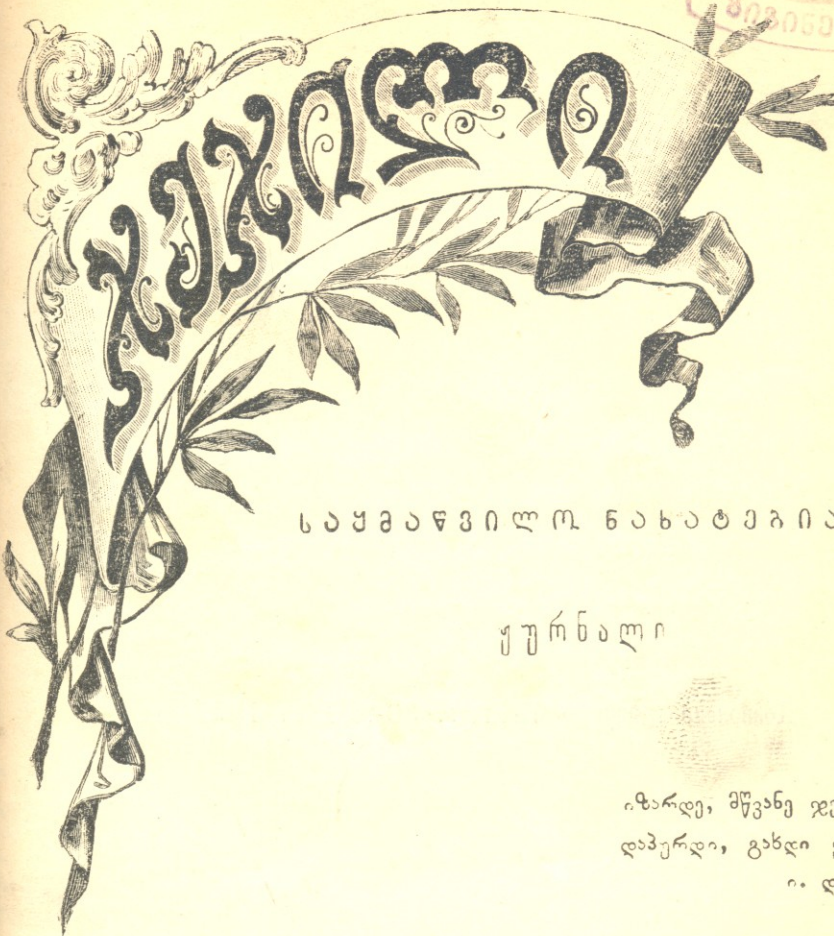 ჯეჯილი
საყმაწვილო ნახატებია
ჟურნალი
იზარდე, მწვანე
დაპურდი, გახდი
ი.